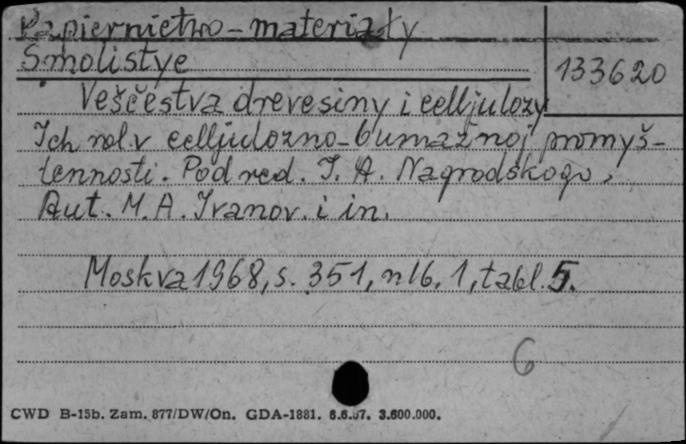 Papiernictwo - materiały
Smolistye
133620
Veščestva drevesiny i celljulozy
Ich rol. v celljulozno-bumažnoj promyš-
lennosti. Pod red. I. A. Nagrodskogo,
Aut. M. A. Ivanov. i in.
Moskva 1968, s. 351, nlb. 1, tabl. 5.
6
CWD B-15b. Zam. 877/DW/On. GDA-1881. 6.6.67. 3.600.000.